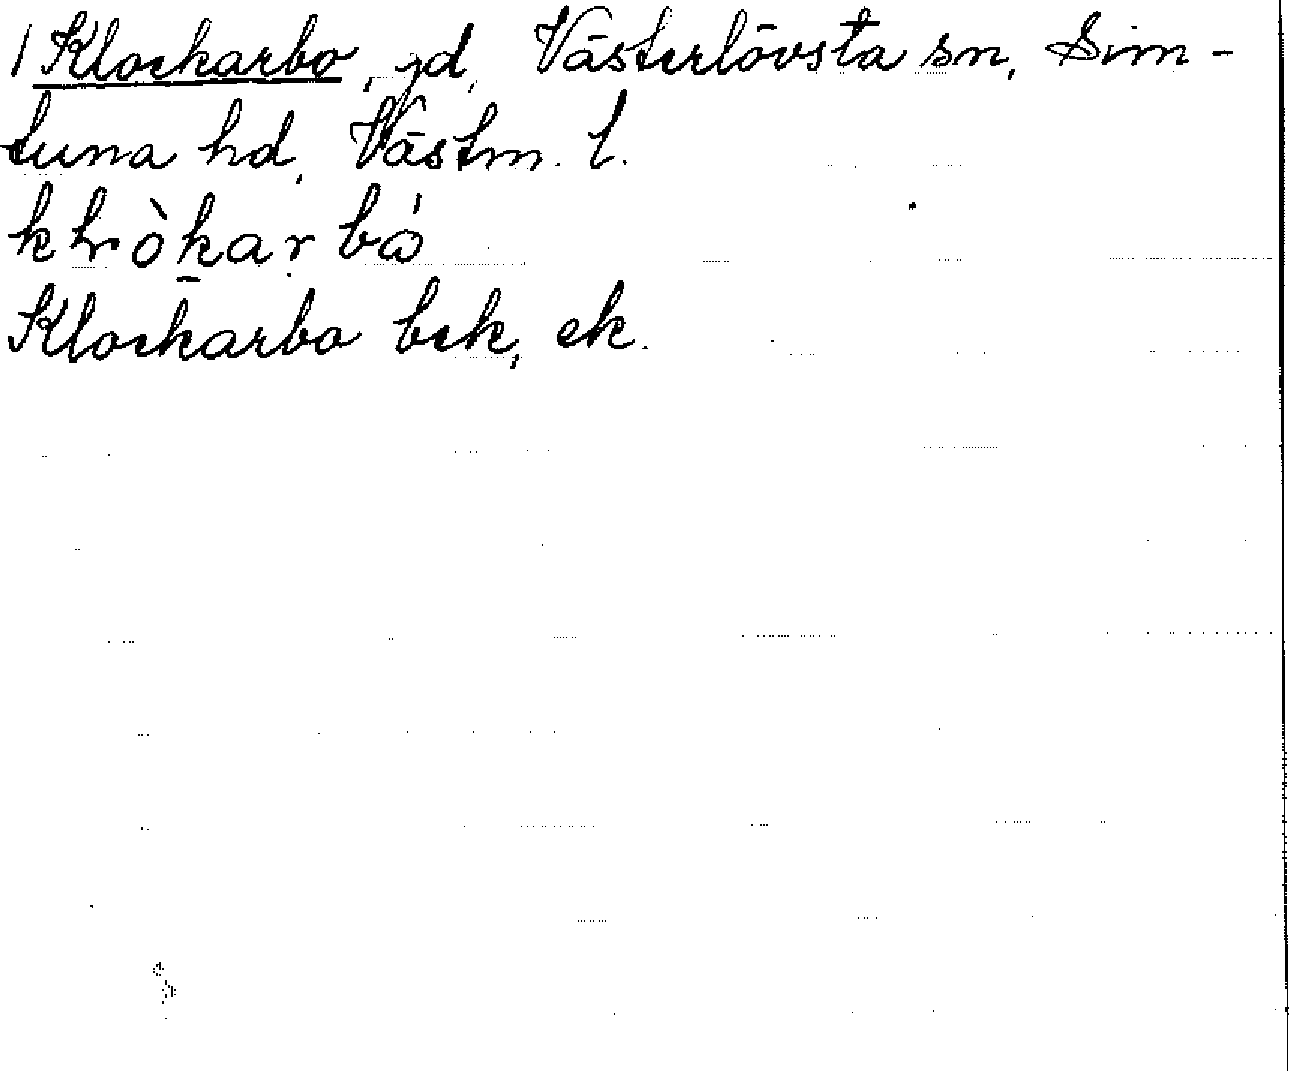 1 Klockarbo, jd, Västerlövsta sn, Sim-
tuna hd, Västm. l.
Klockarbo bek, ek.